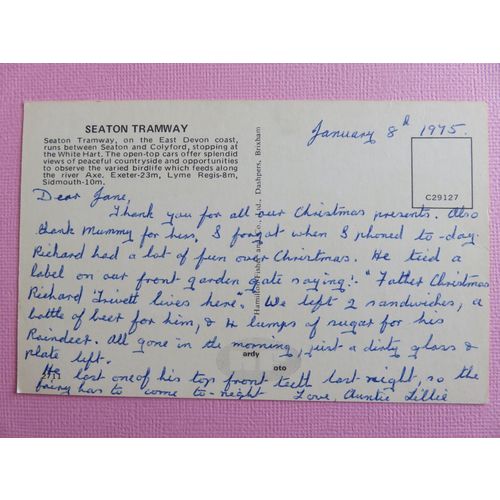 SEATON TRAMWAY
Seaton Tramway, on the East Devon coast,
runs between Seaton and Colyford, stopping at
the White Hart. The open-top cars offer splendid
views of peaceful countryside and opportunities
to observe the varied birdlife which feeds along
the river Axe. Exeter-23m, Lyme Regis-8m,
Sidmouth-10m.
January 8th 1975.
C29127
Dear Jane,
Thank you for all our Christmas presents. Also
thank Mummy for hers, I forgot when I phoned to-day.
Richard had a lot of fun over Christmas. He tied a
label on our front garden gate saying:- "Father Christmas
Richard Trivett lives here". We left 2 sandwiches, a
bottle of beer for him, & 4 lumps of sugar for his
Raindeer. All gone in the morning, just a dirty glass &
plate left.
He lost one of his top front teeth last night, so the
fairy has to come to-night Love, Auntie Lillie
Hamilton Fisher and Co., Ltd., Dashpers, Brixham
ardy
oto